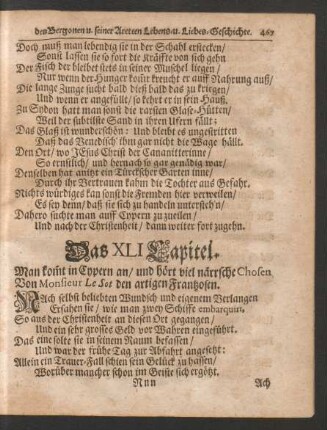 den Bergonen u. seiner Areteen Lebens- u. Liebes-Geschichte. 467
Doch muß man lebendig sie in der Schahl ersticken/
Sonst lassen sie so fort die Kräffte von sich gehn
Der Fisch der bleibet stets in seiner Muschel liegen/
Nur wenn der Hunger kom̃t kreucht er auff Nahrung auß/
Die lange Zunge sucht bald dieß bald das zu kriegen/
Und wenn er angefüllt/ so kehrt er in sein Hauß.
Zu Sydon hatt man sonst die varsten Glase-Hütten/
Weil der subtilste Sand in ihren Ufern fällt:
Das Glaß ist wunderschön: Und bleibt es ungestritten
Daß das Venedisch' ihm gar nicht die Wage hällt.
Den Ort/ wo JEsus Christ der Cananitterinne/
So ernstlich/ und hernach so gar genädig war/
Denselben hat anitzt ein Türckscher Garten inne/
Durch ihr Vertrauen kahm die Tochter aus Gefahr.
Nichts würdiges kan sonst die Fremden hier verweilen/
Es sey denn/ daß sie sich zu handeln untersteh'n/
Dahero suchte man auff Cypern zu zueilen/
Und nach der Christenheit/ dann weiter fort zugehn.
Das XLI Capitel.
Man kom̃t in Cypern an/ und hört viel närrsche Chosen
Von Monsieur Le Sot den artigen Frantzosen.
NAch selbst beliebten Wundsch und eigenem Verlangen
Ersahen sie/ wie man zwey Schiffe embarquirt,
So aus der Christenheit an diesen Ort gegangen/
Und ein sehr grosses Geld vor Wahren eingeführt.
Das eine solte sie in seinem Raum befassen/
Und war der frühe Tag zur Abfahrt angesetzt:
Allein ein Trauer-Fall schien sein Gelück zu hassen/
Worüber mancher schon im Geiste sich ergötzt.
Nnn Ach